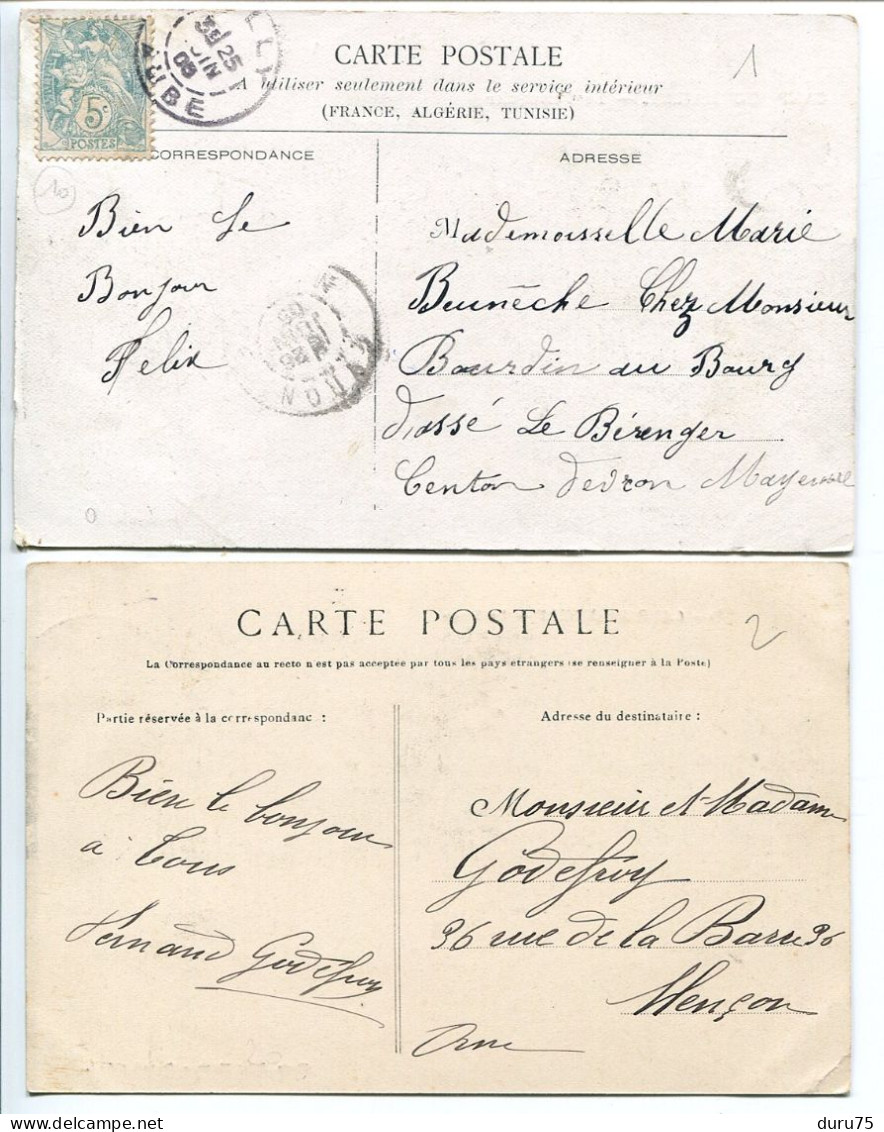 5c
POSTES
25
JUIN
05
ARBE
CARTE POSTALE
A utiliser seulement dans le service intérieur
(FRANCE, ALGÉRIE, TUNISIE)
1
CORRESPONDANCE
10
Bien Le
Bonjour
Felix
0
EVRON
ADRESSE
Mademoisselle Marie
Beunèche Chez Monsieur
Bourdin au Bourg
d'assé Le Bérenger
Centon devron Mayenne
CARTE POSTALE
2
La Correspondance au recto n est pas acceptée par tous les pays etrangers (se renseigner à la Poste)
Partie réservée à la correspondanc :
Bien le bonjour
a Tous
Fernand Godefroy
Adresse du destinataire :
Monsieur et Madame
Godefroy
36 rue de la Barre 36
Alençon
Orne
duru75